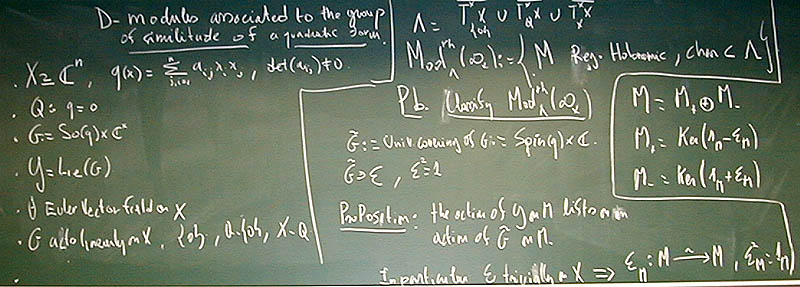 D-modules associated to the group
of similitude of a quadratic form.
. X ≃ ℂⁿ, q(x) = Σ aᵢⱼ xᵢ xⱼ, det(aᵢⱼ) ≠ 0.
. Q: q = 0
. G = So(q) × ℂˣ
. 𝒢 = Lie(G)
. θ Euler vector field on X
. G acts linearly on X, {0}, Q-{0}, X-Q
Λ = T*_{0}X ∪ T*_Q X ∪ T*_X X
Mod^{rh}_Λ(𝒟_X) := { M Reg. Holonomic, char ⊂ Λ }
Pb. Classify Mod^{rh}_Λ(𝒟_X)
G̃ := Univ. covering of G := Spin(q) × ℂ.
G̃ ∋ ε, ε² = 1
Proposition: the action of 𝒢 on M lifts to an
action of G̃ on M.
In particular ε trivially on X ⟹ ε_M : M ⟶ M, ε²_M = 1_M
M = M₊ ⊕ M₋
M₊ = Ker(1_M - ε_M)
M₋ = Ker(1_M + ε_M)